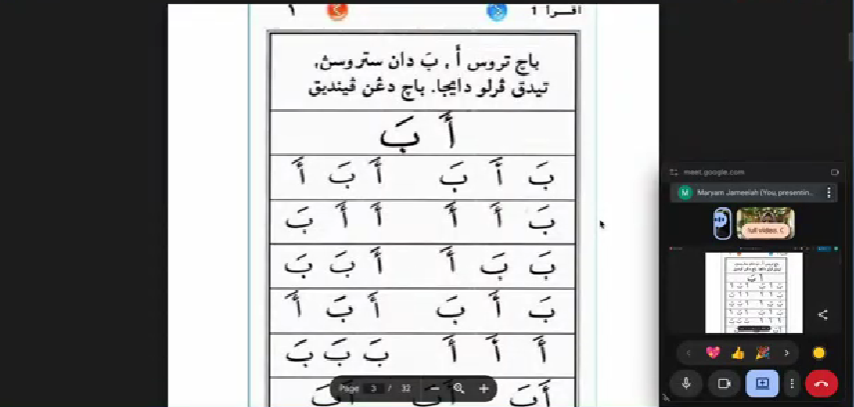 اقرأ 1
١
باچ تروس أ ، بَ دان ستروسڽ،
تيدق ڤرلو دايجا. باچ دڠن ڤينديق
أَ بَ
بَ أَ بَ أَ بَ أَ
بَ أَ أَ أَ أَ بَ
بَ بَ أَ أَ بَ بَ
بَ أَ بَ أَ بَ أَ
أَ أَ أَ بَ بَ بَ
Page 3 / 32
meet.google.com
M Maryam Jameelah (You, presentin...
full video. C